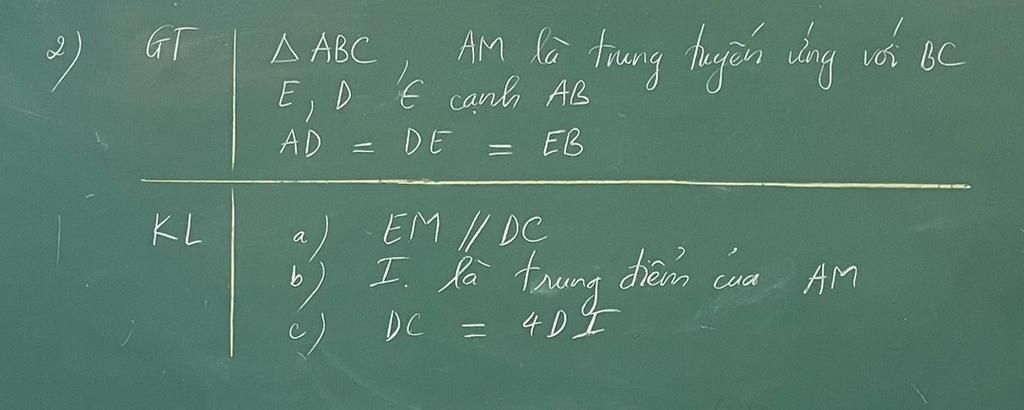 2) GT △ABC, AM là trung tuyến ứng với BC
E, D ∈ cạnh AB
AD = DE = EB
KL a) EM // DC
b) I. là trung điểm của AM
c) DC = 4DI